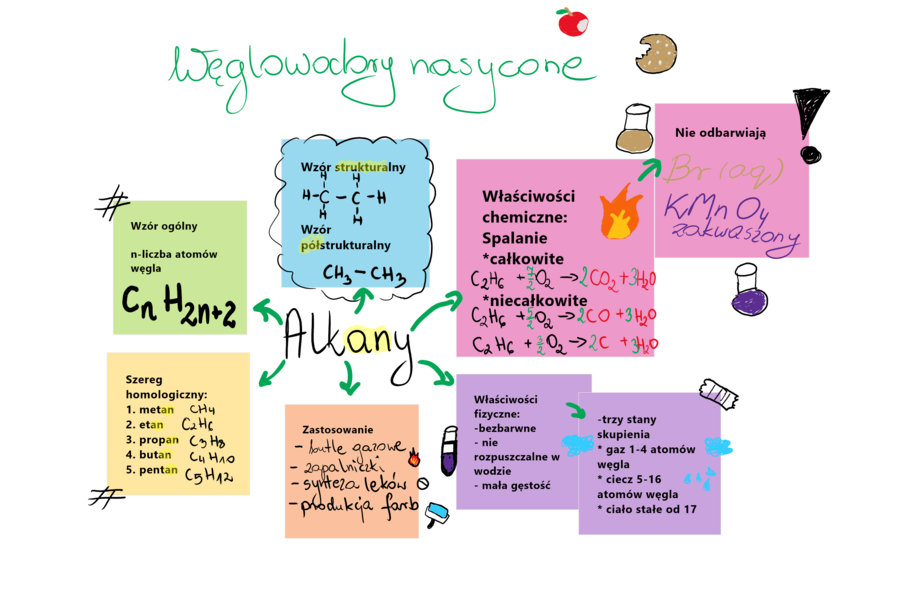 Węglowodory nasycone
Nie odbarwiają
Br (aq)
KMnO4
zakwaszony
Wzór strukturalny
H H
H-C-C-H
H H
Wzór
półstrukturalny
CH3-CH3
Właściwości
chemiczne:
Spalanie
*całkowite
C2H6 + 7/2 O2 → 2CO2 + 3H2O
*niecałkowite
C2H6 + 5/2 O2 → 2CO + 3H2O
C2H6 + 3/2 O2 → 2C + 3H2O
#
Wzór ogólny
n-liczba atomów
węgla
CnH2n+2
Alkany
Szereg
homologiczny:
1. metan CH4
2. etan C2H6
3. propan C3H8
4. butan C4H10
5. pentan C5H12
#
Zastosowanie
- butle gazowe
- zapalniczki
- synteza leków
- produkcja farb
Właściwości
fizyczne:
-bezbarwne
- nie
rozpuszczalne w
wodzie
- mała gęstość
-trzy stany
skupienia
* gaz 1-4 atomów
węgla
* ciecz 5-16
atomów węgla
* ciało stałe od 17